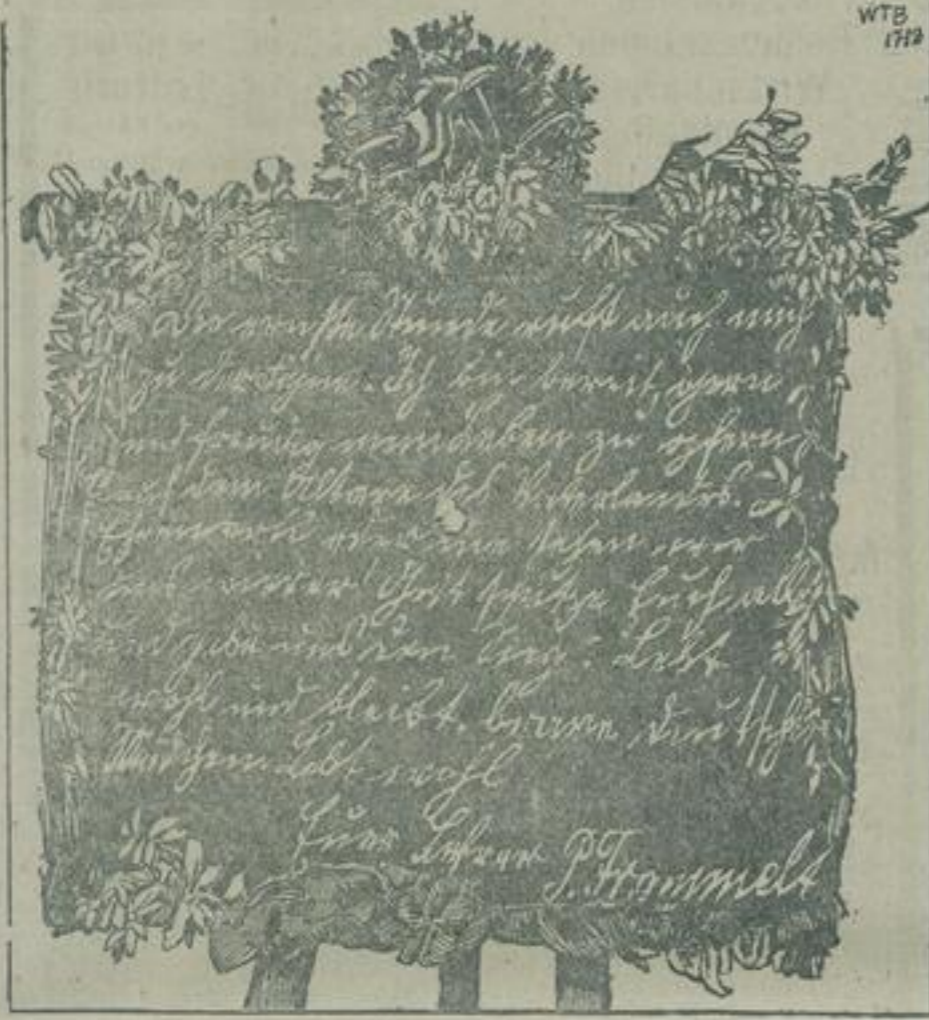 WTB
Die ernste Stunde ruft auch mich
zu Ich bin bereit, gern
und freudig mein Leben zu opfern
auf dem Altare des Vaterlandes.
sehen wir
uns wieder! Gott schütze Euch alle
und gebe uns den Sieg! Lebt
wohl und bleibt brave deutsche
Mädchen. Lebt wohl
Euer Lehrer P. Frommelt